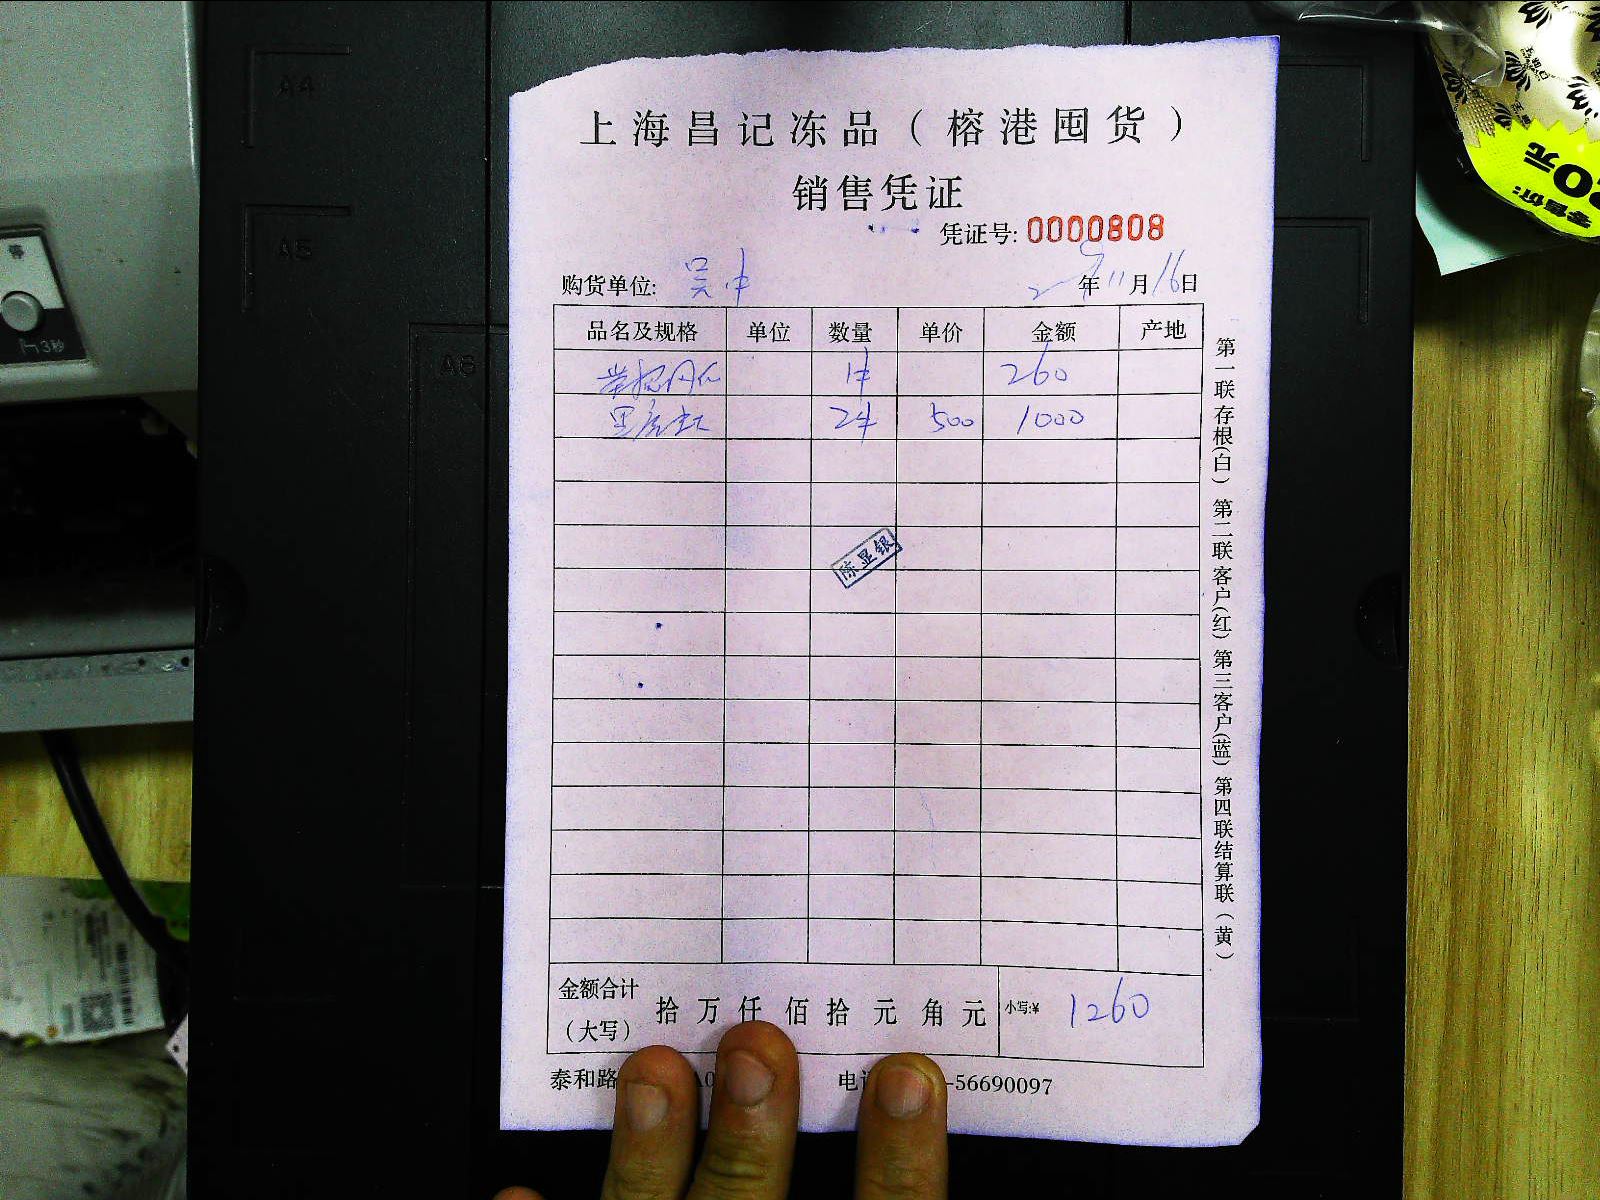 上海昌记冻品（榕港囤货）
销售凭证
凭证号: 0000808
购货单位: 吴中
年11月16日
品名及规格 单位 数量 单价 金额 产地
1件 260
黑虎虾 2件 500 1000
陈显银
金额合计（大写） 拾 万 仟 佰 拾 元 角 元 小写:¥ 1260
泰和路
-56690097
第一联存根(白) 第二联客户(红) 第三客户(蓝) 第四联结算联(黄)
A4
A5
A6
3秒
零售价:
元